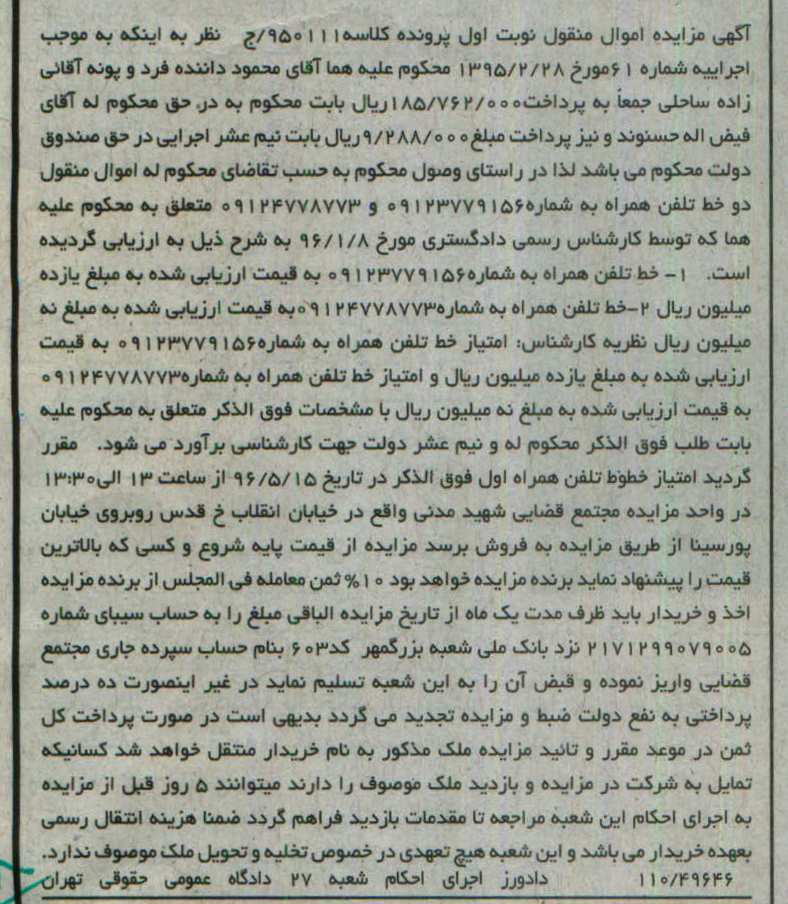 آگهی مزایده اموال منقول نوبت اول پرونده کلاسه۹۵۰۱۱۱/ج نظر به اینکه به موجب
اجراییه شماره ۶۱مورخ ۱۳۹۵/۲/۲۸ محکوم علیه هما آقای محمود داننده فرد و پونه آقائی
زاده ساحلی جمعاً به پرداخت۱۸۵/۷۶۲/۰۰۰ریال بابت محکوم به در حق محکوم له آقای
فیض اله حسنوند و نیز پرداخت مبلغ۹/۲۸۸/۰۰۰ریال بابت نیم عشر اجرایی در حق صندوق
دولت محکوم می باشد لذا در راستای وصول محکوم به حسب تقاضای محکوم له اموال منقول
دو خط تلفن همراه به شماره۰۹۱۲۳۷۷۹۱۵۶ و ۰۹۱۲۴۷۷۸۷۷۳ متعلق به محکوم علیه
هما که توسط کارشناس رسمی دادگستری مورخ ۹۶/۱/۸ به شرح ذیل به ارزیابی گردیده
است. ۱- خط تلفن همراه به شماره۰۹۱۲۳۷۷۹۱۵۶ به قیمت ارزیابی شده به مبلغ یازده
میلیون ریال ۲-خط تلفن همراه به شماره۰۹۱۲۴۷۷۸۷۷۳به قیمت ارزیابی شده به مبلغ نه
میلیون ریال نظریه کارشناس: امتیاز خط تلفن همراه به شماره۰۹۱۲۳۷۷۹۱۵۶ به قیمت
ارزیابی شده به مبلغ یازده میلیون ریال و امتیاز خط تلفن همراه به شماره۰۹۱۲۴۷۷۸۷۷۳
به قیمت ارزیابی شده به مبلغ نه میلیون ریال با مشخصات فوق الذکر متعلق به محکوم علیه
بابت طلب فوق الذکر محکوم له و نیم عشر دولت جهت کارشناسی برآورد می شود. مقرر
گردید امتیاز خطوط تلفن همراه اول فوق الذکر در تاریخ ۹۶/۵/۱۵ از ساعت ۱۳ الی۱۳:۳۰
در واحد مزایده مجتمع قضایی شهید مدنی واقع در خیابان انقلاب خ قدس روبروی خیابان
پورسینا از طریق مزایده به فروش برسد مزایده از قیمت پایه شروع و کسی که بالاترین
قیمت را پیشنهاد نماید برنده مزایده خواهد بود ۱۰% ثمن معامله فی المجلس از برنده مزایده
اخذ و خریدار باید ظرف مدت یک ماه از تاریخ مزایده الباقی مبلغ را به حساب سیبای شماره
۲۱۷۱۲۹۹۰۷۹۰۰۵ نزد بانک ملی شعبه بزرگمهر کد۶۰۳ بنام حساب سپرده جاری مجتمع
قضایی واریز نموده و قبض آن را به این شعبه تسلیم نماید در غیر اینصورت ده درصد
پرداختی به نفع دولت ضبط و مزایده تجدید می گردد بدیهی است در صورت پرداخت کل
ثمن در موعد مقرر و تائید مزایده ملک مذکور به نام خریدار منتقل خواهد شد کسانیکه
تمایل به شرکت در مزایده و بازدید ملک موصوف را دارند میتوانند ۵ روز قبل از مزایده
به اجرای احکام این شعبه مراجعه تا مقدمات بازدید فراهم گردد ضمنا هزینه انتقال رسمی
بعهده خریدار می باشد و این شعبه هیچ تعهدی در خصوص تخلیه و تحویل ملک موصوف ندارد.
۱۱۰/۴۹۶۴۶ دادورز اجرای احکام شعبه ۲۷ دادگاه عمومی حقوقی تهران